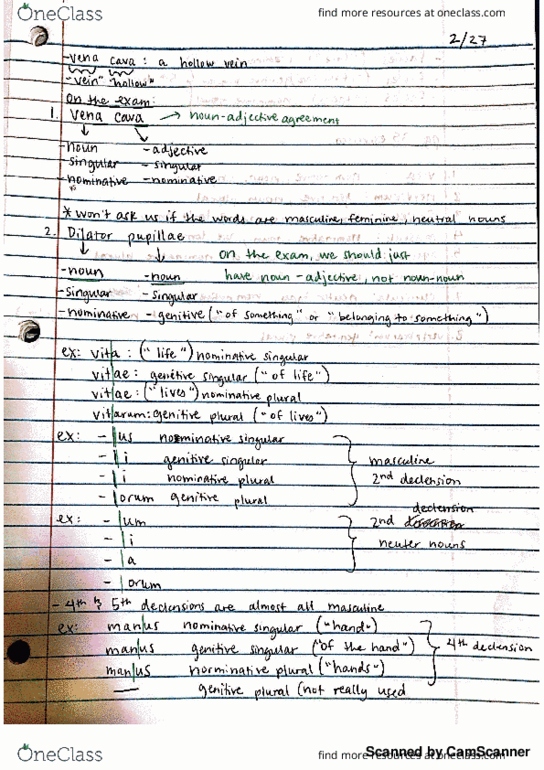 OneClass
find more resources at oneclass.com
2/27
-vena cava : a hollow vein
-"vein" "hollow"
on the exam:
1. Vena cava → noun-adjective agreement
-noun -adjective
-singular -singular
-nominative -nominative
* won't ask us if the words are masculine, feminine, neutral nouns
2. Dilator pupillae
on the exam, we should just
-noun -noun have noun-adjective, not noun-noun
-singular -singular
-nominative -genitive ("of something" or "belonging to something")
ex: vita : ("life") nominative singular
vitae : genitive singular ("of life")
vitae : ("lives") nominative plural
vitarum: genitive plural ("of lives")
ex: -us nominative singular
-i genitive singular
-i nominative plural
-orum genitive plural
masculine
2nd declension
ex: -um
-i
-a
-orum
2nd declension
neuter nouns
- 4th & 5th declensions are almost all masculine
ex: man|us nominative singular ("hand")
man|us genitive singular ("of the hand")
man|us nominative plural ("hands")
— genitive plural (not really used
4th declension
OneClass
find more resources at oneclass.com
Scanned by CamScanner